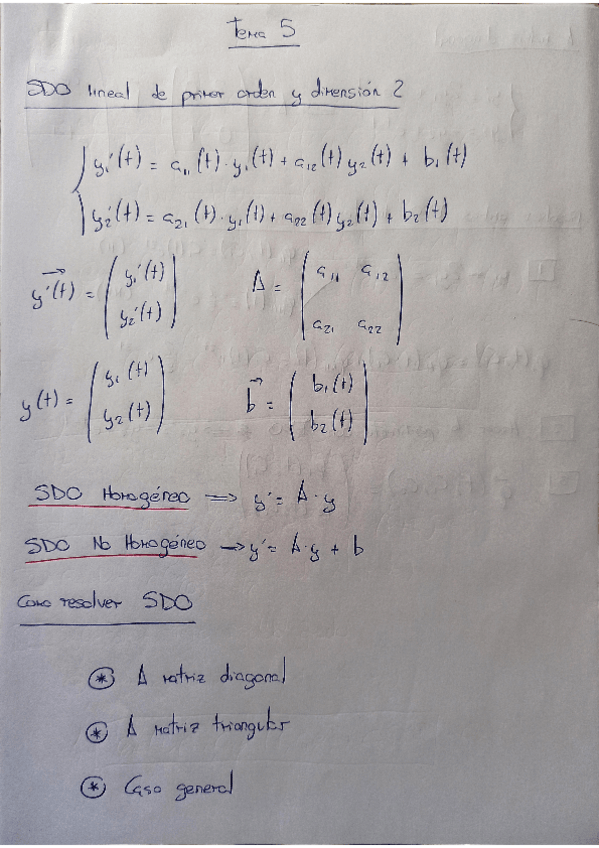 Tema 5
SDO lineal de primer orden y dimensión 2
y₁'(t) = a₁₁(t)·y₁(t) + a₁₂(t) y₂(t) + b₁(t)
y₂'(t) = a₂₁(t)·y₁(t) + a₂₂(t) y₂(t) + b₂(t)
y'(t) = ( y₁'(t) y₂'(t) ) A = ( a₁₁ a₁₂ a₂₁ a₂₂ )
y(t) = ( y₁(t) y₂(t) ) b = ( b₁(t) b₂(t) )
SDO Homogéneo ⟹ y' = A·y
SDO No Homogéneo → y' = A·y + b
Como resolver SDO
⊛ A matriz diagonal
⊛ A matriz triangular
⊛ Caso general